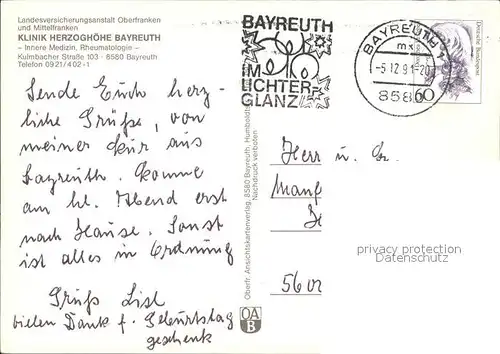 Landesversicherungsanstalt Oberfranken
und Mittelfranken
KLINIK HERZOGHÖHE BAYREUTH
– Innere Medizin, Rheumatologie –
Kulmbacher Straße 103 · 8580 Bayreuth
Telefon 0921/402-1
Sende Euch herz-
liche Grüße, von
meiner Kur aus
Bayreuth. Komme
am hl. Abend erst
nach Hause. Sonst
ist alles in Ordnung
Gruß Lisl
vielen Dank f. Geburtstag
geschenk
Oberfr. Ansichtskartenverlag, 8580 Bayreuth, Humboldt
Nachdruck verboten
OA
B
BAYREUTH
IM
LICHTER
GLANZ
BAYREUTH 1
mx
-5.12.91-20
8580
60
Deutsche Bundespost
Herr u. Fr.
privacy protection
Datenschutz